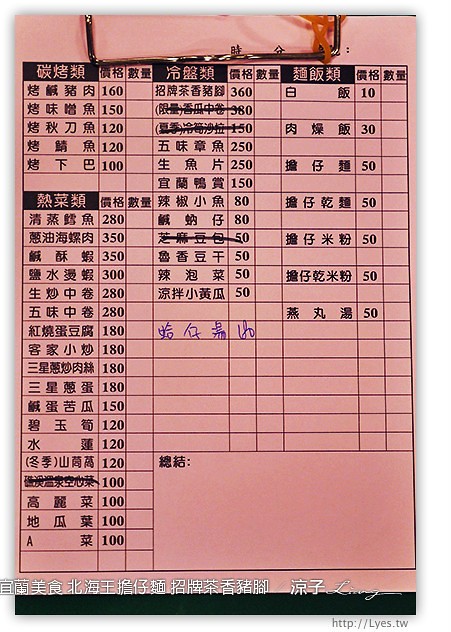 時 分
碳烤類 價格 數量
烤鹹豬肉 160
烤味噌魚 150
烤秋刀魚 120
烤鯖魚 120
烤下巴 100
熱菜類 價格 數量
清蒸鱈魚 280
蔥油海螺肉 350
鹹酥蝦 350
鹽水燙蝦 300
生炒中卷 280
五味中卷 280
紅燒蛋豆腐 180
客家小炒 180
三星蔥炒肉絲 180
三星蔥蛋 180
鹹蛋苦瓜 150
碧玉筍 120
水蓮 120
(冬季)山茼萵 120
礁溪溫泉空心菜 100
高麗菜 100
地瓜葉 100
A菜 100
冷盤類 價格 數量
招牌茶香豬腳 360
(限量)香瓜中卷 380
(夏季)冷筍沙拉 150
五味章魚 250
生魚片 250
宜蘭鴨賞 150
辣椒小魚 80
鹹蚋仔 80
芝麻豆包 50
魯香豆干 50
辣泡菜 50
涼拌小黃瓜 50
蛤仔湯
總結:
麵飯類 價格 數量
白飯 10
肉燥飯 30
擔仔麵 50
擔仔乾麵 50
擔仔米粉 50
擔仔乾米粉 50
燕丸湯 50
宜蘭美食 北海王擔仔麵 招牌茶香豬腳 涼子
http://Lyes.tw